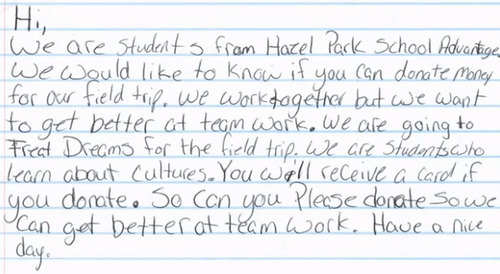 Hi,
We are students from Hazel Park School Advantage.
We would like to know if you can donate money
for our field trip. We work together but we want
to get better at team work. We are going to
Treat Dreams for the field trip. We are students who
learn about cultures. You will receive a card if
you donate. So can you Please donate so we
can get better at team work. Have a nice
day.